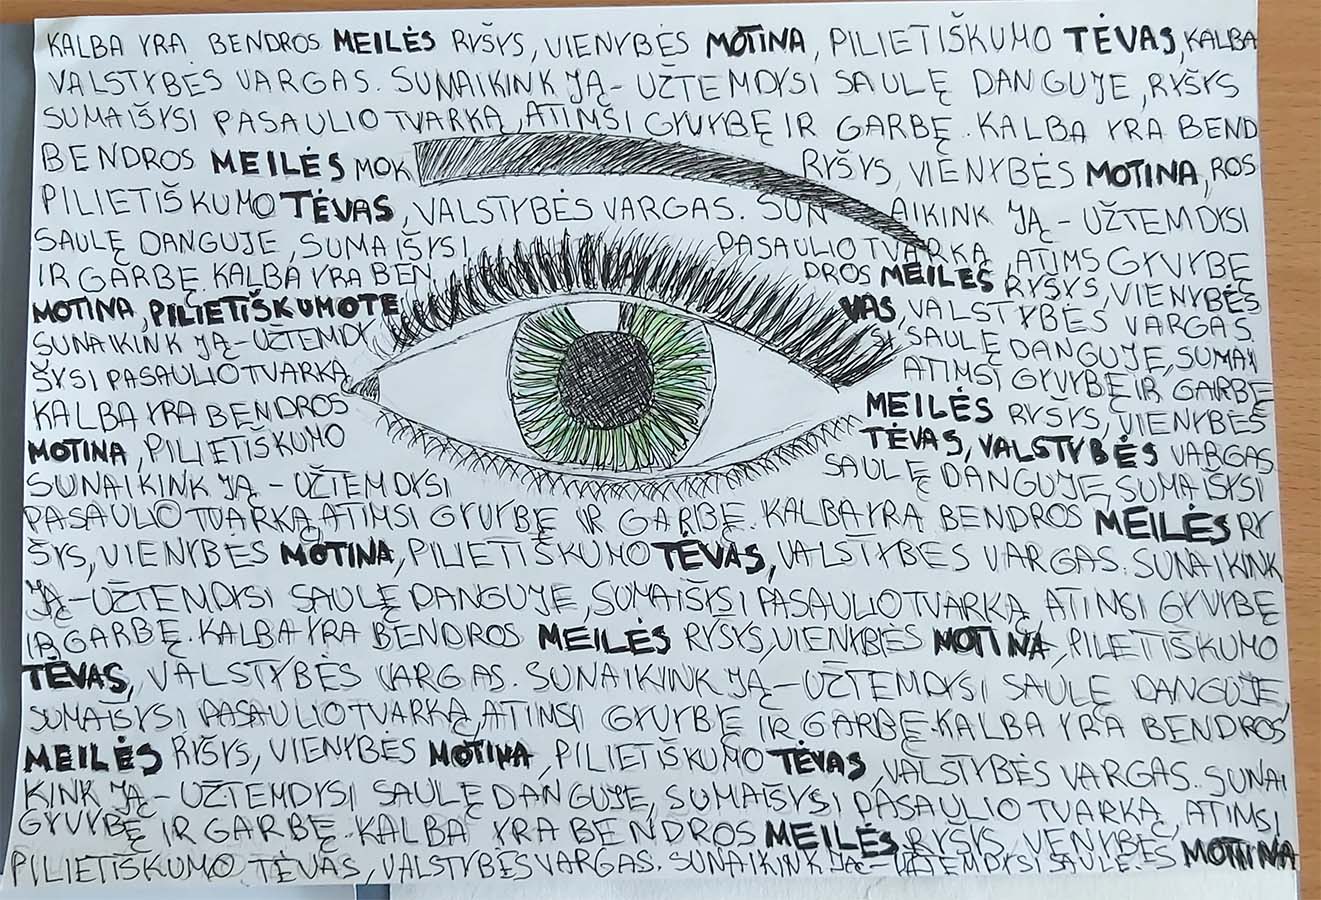 KALBA YRA BENDROS MEILĖS RYŠYS, VIENYBĖS MOTINA, PILIETIŠKUMO TĖVAS, KALBA
VALSTYBĖS VARGAS. SUNAIKINK JĄ - UŽTEMDYSI SAULĘ DANGUJE, RYŠYS
SUMAIŠYSI PASAULIO TVARKĄ, ATIMSI GYVYBĘ IR GARBĘ. KALBA YRA BEND
BENDROS MEILĖS MOK RYŠYS, VIENYBĖS MOTINA, ROS
PILIETIŠKUMO TĖVAS, VALSTYBĖS VARGAS. SUN AIKINK JĄ - UŽTEMDYSI
SAULĘ DANGUJE, SUMAIŠYSI PASAULIO TVARKĄ, ATIMS GYVYBĘ
IR GARBĘ. KALBA YRA BEN DROS MEILĖS RYŠYS, VIENYBĖS
MOTINA, PILIETIŠKUMO TE VAS, VALSTYBĖS VARGAS.
SUNAIKINK JĄ - UŽTEMDY SI SAULĘ DANGUJE, SUMAI
ŠYSI PASAULIO TVARKĄ ATIMSI GYVYBĘ IR GARBĘ
KALBA YRA BENDROS MEILĖS RYŠYS, VIENYBĖS
MOTINA, PILIETIŠKUMO TĖVAS, VALSTYBĖS VARGAS
SUNAIKINK JĄ - UŽTEMDYSI SAULĘ DANGUJE, SUMAIŠYSI
PASAULIO TVARKĄ, ATIMSI GYVYBĘ IR GARBĘ. KALBA YRA BENDROS MEILĖS RY
ŠYS, VIENYBĖS MOTINA, PILIETIŠKUMO TĖVAS, VALSTYBĖS VARGAS. SUNAIKINK
JĄ - UŽTEMDYSI SAULĘ DANGUJE, SUMAIŠYSI PASAULIO TVARKĄ, ATIMSI GYVYBĘ
IR GARBĘ. KALBA YRA BENDROS MEILĖS RYŠYS, VIENYBĖS MOTINA, PILIETIŠKUMO
TĖVAS, VALSTYBĖS VARGAS. SUNAIKINK JĄ - UŽTEMDYSI SAULĘ DANGUJE,
SUMAIŠYSI PASAULIO TVARKĄ, ATIMSI GYVYBĘ IR GARBĘ. KALBA YRA BENDROS
MEILĖS RYŠYS, VIENYBĖS MOTINA, PILIETIŠKUMO TĖVAS, VALSTYBĖS VARGAS. SUNAI
KINK JĄ - UŽTEMDYSI SAULĘ DANGUJE, SUMAIŠYSI PASAULIO TVARKĄ, ATIMSI
GYVYBĘ IR GARBĘ. KALBA YRA BENDROS MEILĖS RYŠYS, VENYBĖS MOTINA
PILIETIŠKUMO TĖVAS, VALSTYBĖS VARGAS. SUNAIKINK JĄ - UŽTEMDYSI SAULĘ